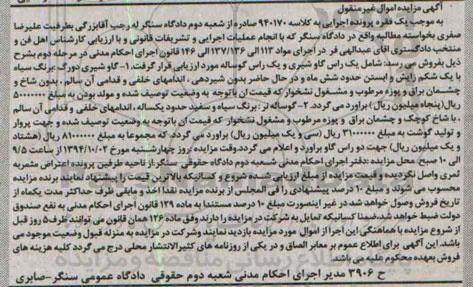 آگهی مزایده اموال غیر منقول
به موجب یک فقره پرونده اجرایی به کلاسه ۹۴۰۱۷۰ صادره از شعبه دوم دادگاه سنگر له رجب آقابزرگی بطرفیت علیرضا
صفری بخواسته مطالبه واقع در دادگاه سنگر که با انجام عملیات اجرایی و تشریفات قانونی و با ارزیابی کارشناس اهل فن و
منتخب دادگستری آقای عبدالهی فر در اجرای مواد ۱۱۳ الی ۱۳۷/۱۳۶ الی ۱۴۶ قانون اجرای احکام مدنی در مرحله دوم بشرح
ذیل بفروش می رسد: شامل یک راس گاو شیری و یک راس گوساله مورد ارزیابی قرار گرفت. ۱- گاو شیری دورگ -برنگ سیاه
با یک شکم زایش و آبستن حدود شش ماه و در حال حاضر بدون شیردهی ، اندامهای خلفی و قدامی آن سالم ،بدون شاخ و
چشمان براق و پوزه مرطوب و مشغول نشخوار که قیمت آن باتوجه به وضعیت توصیف شده و مولد بودن به مبلغ ۵۰۰۰۰۰۰۰
ریال(پنجاه میلیون ریال) برآورد می گردد. ۲-گوساله نر : برنگ سیاه و سفید حدود یکساله ، اندامهای خلفی و قدامی آن سالم
، با شاخ کوچک و چشمان براق و پوزه مرطوب و مشغول نشخوار که قیمت آن باتوجه به وضعیت توصیف شده و جهت پروار
و تولید گوشت به مبلغ ۳۱۰۰۰۰۰۰ ریال (سی و یک میلیون ریال) برآورد می گردد. که مجموعا به مبلغ ۸۱۰۰۰۰۰۰ ریال (هشتاد
و یک میلیون ریال) جهت دو راس گاو برآورد و اعلام می گردد.وقت مزایده :روز چهارشنبه مورخ ۱۳۹۴/۱۰/۰۲ از ساعت ۹/۵
الی ۱۰ صبح. محل مزایده :دفتر اجرای احکام مدنی شعبه دوم دادگاه حقوقی سنگر.از ناحیه طرفین پرونده اعتراض مثمربه
ثمری واصل نگردیده و قیمت مزایده از مبلغ ارزیابی شده شروع و کسانیکه بالاترین قیمت را پیشنهاد نمایند برنده مزایده
محسوب می شوند و مبلغ ۱۰ درصد پیشنهادی را فی المجلس از برنده مزایده نقدا اخذ و مابقی ظرف حداکثر مدت یکماه از
تاریخ فروش وصول خواهد شد.در غیر اینصورت مبلغ ۱۰ درصد مستندا به ماده ۱۲۹ قانون اجرای احکام مدنی به نفع صندوق
دولت ضبط خواهد شد.ضمنا کسانیکه تمایل به شرکت در مزایده را دارند وفق ماده ۱۲۶ همان قانون می توانند ظرف۵ روز قبل
از شروع مزایده با هماهنگی این اجرا از اموال مورد مزایده بازدید نمایند وشرکت در مزایده به منزله قبول وضعیت موجود می
باشد. این آگهی برای اطلاع عموم بر معابر الصاق و در یکی از روزنامه های کثیرالانتشار محلی درج می گردد کلیه هزینه های
فروش بعهده محکوم علیه می باشد.
ح ۳۹۰۶ مدیر اجرای احکام مدنی شعبه دوم حقوقی دادگاه عمومی سنگر-صابری